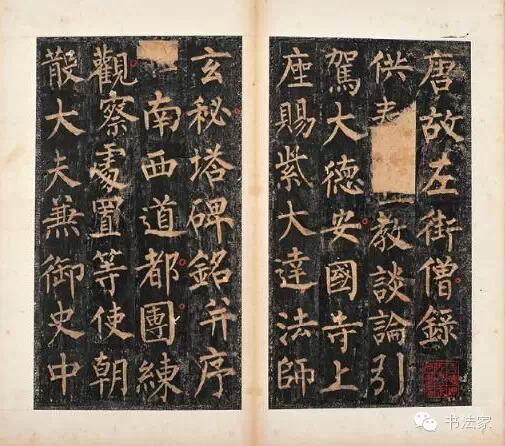 唐故左街僧錄
供教談論引
駕大德安國寺上
座賜紫大達法師
玄秘塔碑銘并序
南西道都團練
觀察處置等使朝
散大夫兼御史中
书法家